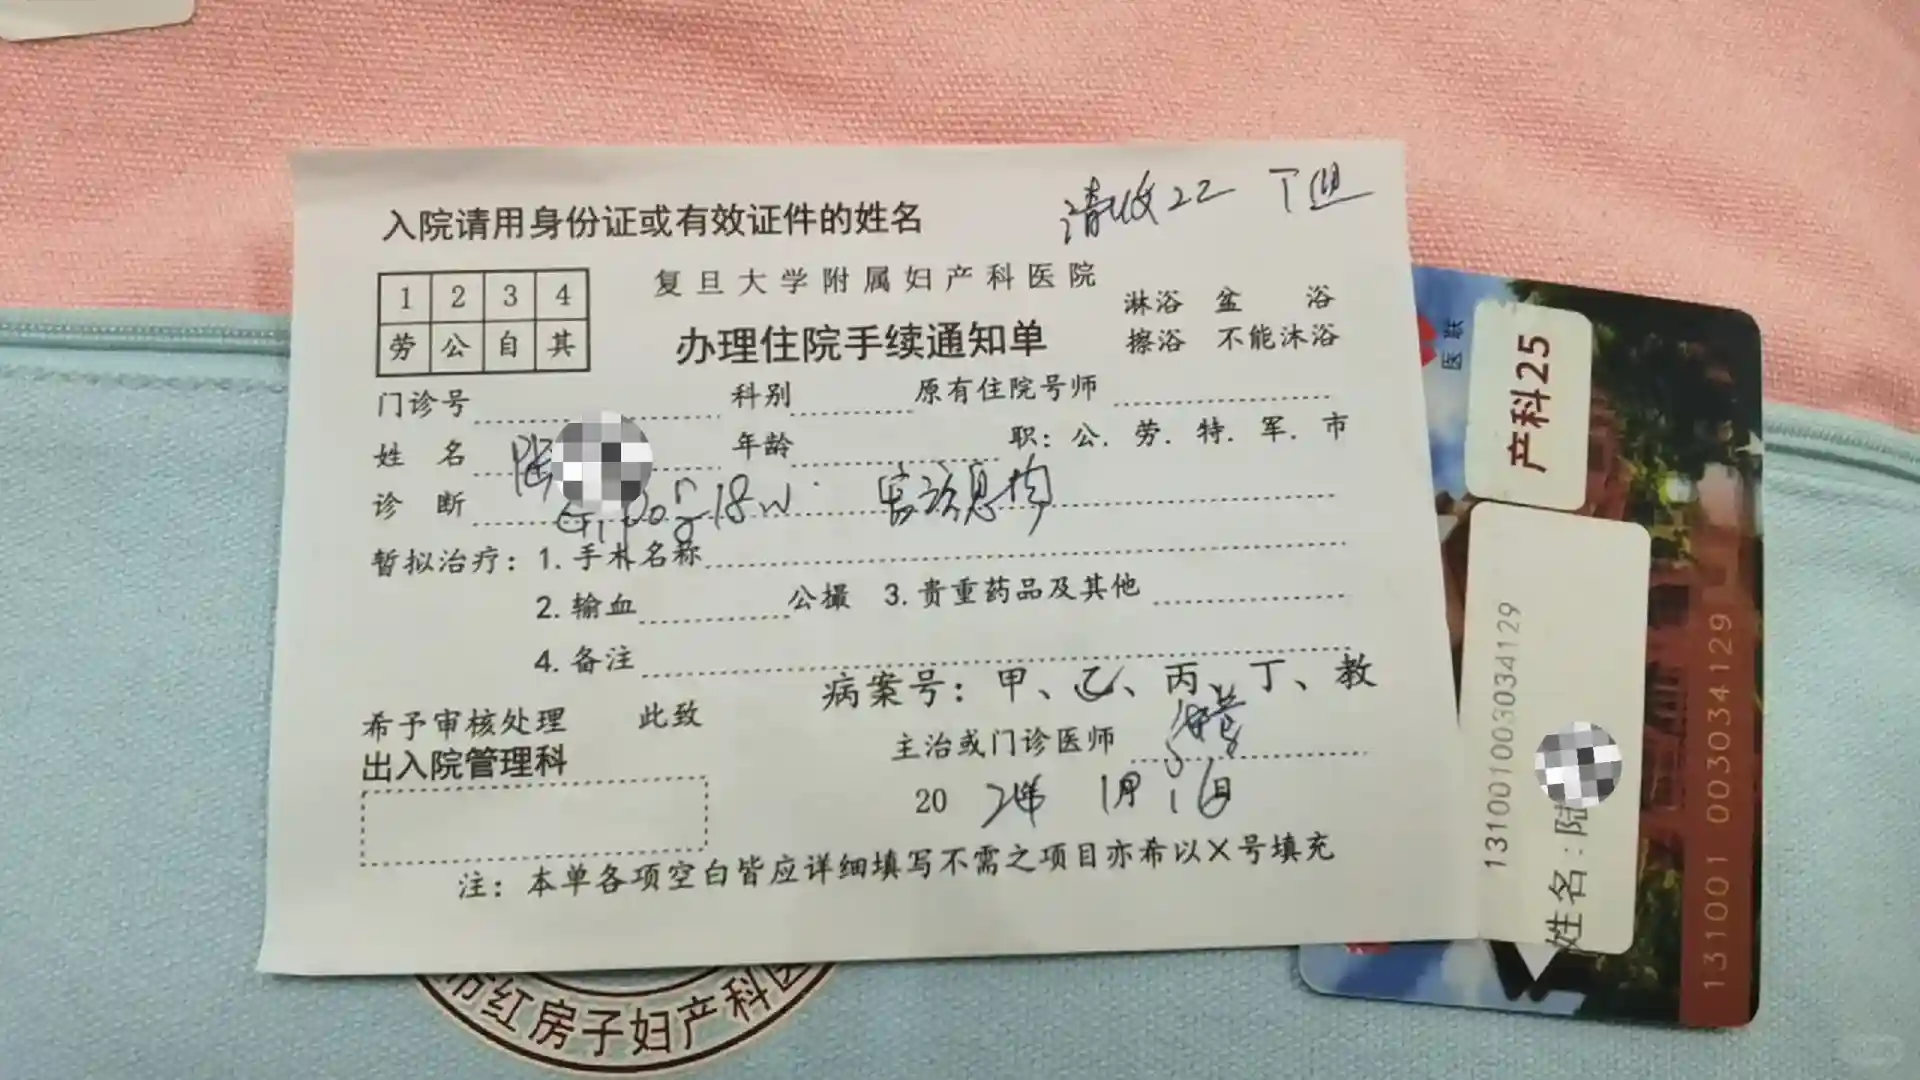 请收22
入院请用身份证或有效证件的姓名
复旦大学附属妇产科医院
1 2 3 4
劳 公 自 其
淋浴 盆 浴
擦浴 不能沐浴
办理住院手续通知单
门诊号 科别 原有住院号师
姓 名 陆 年龄 职：公．劳．特．军．市
诊 断 18w
暂拟治疗：1.手术名称
2.输血 公撮 3.贵重药品及其他
4.备注
病案号：甲、乙、丙、丁、教
希予审核处理 此致
出入院管理科
主治或门诊医师
20 24年 1月 16日
注：本单各项空白皆应详细填写不需之项目亦希以X号填充
红房子妇产科医
医联
产科25
131001003034129
姓名：陆
131001 003034129